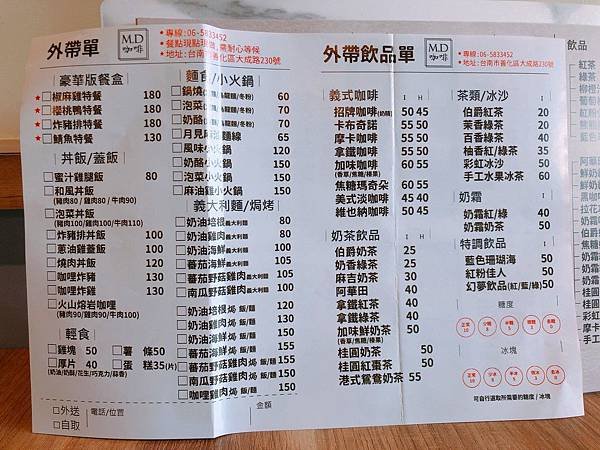 外帶單
M.D
咖啡
•專線:06-5833452
•地址:台南市善化區大成路230號
豪華版餐盒
★□椒麻雞特餐 180
★□櫻桃鴨特餐 180
★□炸豬排特餐 180
★□鯖魚特餐 130
丼飯/蓋飯
□蜜汁雞腿飯 80
□和風丼飯
(豬肉80/雞肉80/牛肉90)
□泡菜丼飯
(豬肉100/雞肉100/牛肉110)
□炸豬排丼飯 100
□蔥油雞蓋飯 100
□燒肉丼飯 120
□咖哩炸豬 130
□咖哩炸雞 130
□火山熔岩咖哩
(豬肉90/雞肉90/牛肉100)
輕食
□雞塊 50 □薯 條50
□厚片 40 □蛋 糕35(片)
(奶油/奶酥/花生/巧克力/蒜香)
□外送
□自取
電話/位置
金額
麵食/小火鍋
□鍋燒(意麵/雞絲麵/冬粉) 60
□泡菜(意麵/雞絲麵/冬粉) 70
□奶酪(意麵/雞絲麵/冬粉) 70
麵線 65
□風味小火鍋 120
□奶酪小火鍋 150
□泡菜小火鍋 150
□麻油雞小火鍋 150
義大利麵/焗烤
□奶油培根義大利麵 80
□奶油雞肉義大利麵 80
□奶油海鮮義大利麵 100
□蕃茄海鮮義大利麵 100
□蕃茄野菇雞肉義大利麵 105
□南瓜野菇雞肉義大利麵 100
□奶油培根焗 飯/麵 120
□奶油雞肉焗 飯/麵 130
□奶油海鮮焗 飯/麵 150
□蕃茄海鮮焗 飯/麵 155
□蕃茄野菇雞肉焗 飯/麵 155
□南瓜野菇雞肉焗 飯/麵 150
□咖哩雞肉焗 飯/麵 150
外帶飲品單
M.D
咖啡
•專線:06-5833452
•地址:台南市善化區大成路230號
義式咖啡 I H
招牌咖啡(奶精) 50 45
卡布奇諾 55 55
摩卡咖啡 55 50
拿鐵咖啡 55 50
加味咖啡 60 55
(香草/焦糖/榛果)
焦糖瑪奇朵 60 55
美式淡咖啡 45 40
維也納咖啡 50 45
奶茶飲品 I H
伯爵奶茶 25
奶香綠茶 25
麻吉奶茶 30
阿華田 40
拿鐵紅茶 40
拿鐵綠茶 40
加味鮮奶茶 50
(香草/焦糖/榛果)
桂圓奶茶 50
桂圓紅棗茶 50
港式鴛鴦奶茶 55
茶類/冰沙 I
伯爵紅茶 20
茉香綠茶 20
百香綠茶 40
柚香紅/綠茶 35
彩虹冰沙 50
手工水果冰茶 60
奶霜 I
奶霜紅/綠 40
奶霜奶茶 50
特調飲品 I
藍色珊瑚海 50
紅粉佳人 50
幻夢飲品(紅/藍/綠)50
糖度
冰塊
可自行選取所需要的糖度/冰塊
飲品